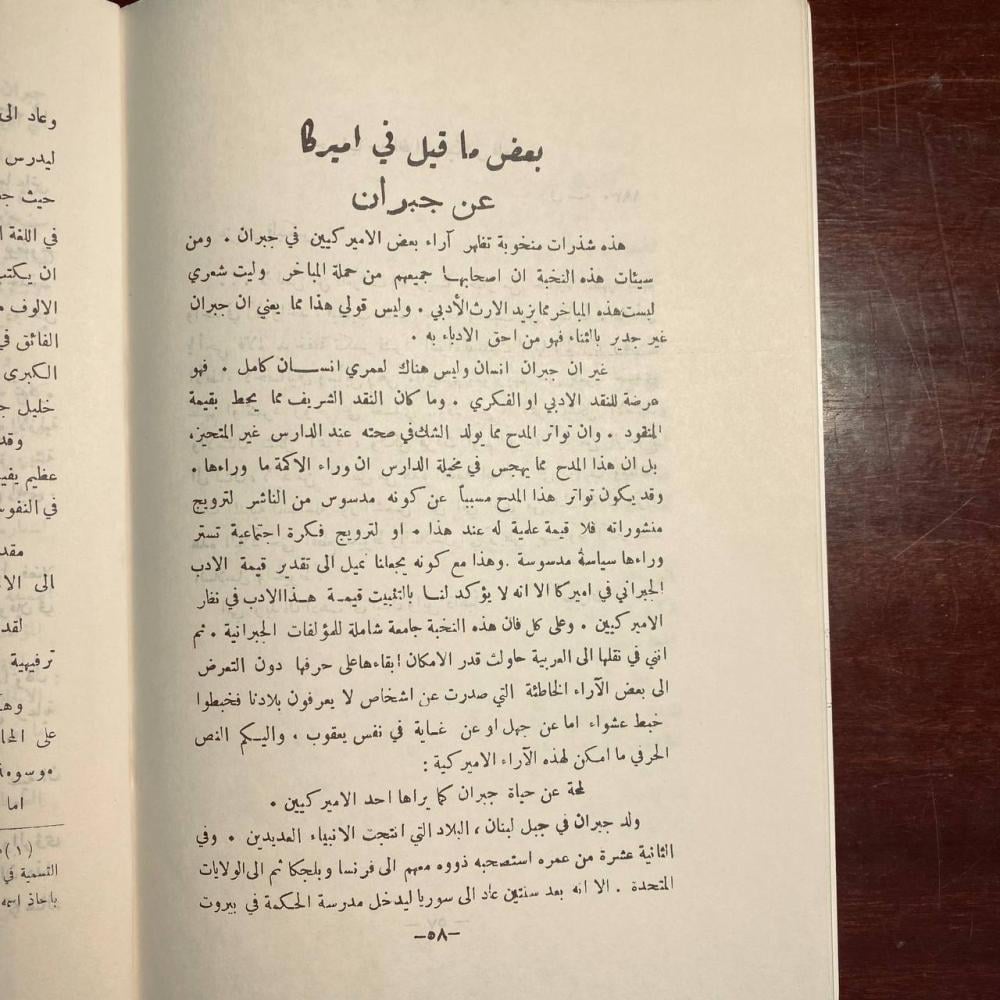 بعض ما قيل في اميركا
عن جبران
هذه شذرات منخوبة تظهر آراء بعض الاميركيين في جبران . ومن
سيئات هذه النخبة ان اصحابها جميعهم من حملة المباخر وليت شعري
ليست هذه المباخر مما يزيد الارث الأدبي . وليس قولي هذا مما يعني ان جبران
غير جدير بالثناء فهو من احق الادباء به .
غير ان جبران انسان وليس هناك لعمري انسان كامل . فهو
عرضة للنقد الادبي او الفكري . وما كان النقد الشريف مما يحط بقيمة
المنقود . وان تواتر المدح مما يولد الشك في صحته عند الدارس غير المتحيز،
بل ان هذا المدح مما يهجس في مخيلة الدارس ان وراء الاكمة ما وراءها .
وقد يكون تواتر هذا المدح مسبباً عن كونه مدسوس من الناشر لترويج
منشوراته فلا قيمة علمية له عند هذا . او لترويج فكرة اجتماعية تستر
وراءها سياسة مدسوسة . وهذا مع كونه يجعلنا نميل الى تقدير قيمة الادب
الجبراني في اميركا الا انه لا يؤكد لنا بالتثبيت قيمة هذا الادب في نظر
الاميركيين . وعلى كل فان هذه النخبة جامعة شاملة للمؤلفات الجبرانية . ثم
انني في نقلها الى العربية حاولت قدر الامكان ابقاءها على حرفها دون التعرض
الى بعض الآراء الخاطئة التي صدرت عن اشخاص لا يعرفون بلادنا فخبطوا
خبط عشواء اما عن جهل او عن غاية في نفس يعقوب . واليكم النص
الحرفي ما امكن لهذه الآراء الاميركية :
لمحة عن حياة جبران كما يراها احد الاميركيين .
ولد جبران في جبل لبنان ، البلاد التي انتجت الانبياء العديدين . وفي
الثانية عشرة من عمره استصحبه ذووه معهم الى فرنسا وبلجكا ثم الى الولايات
المتحدة . الا انه بعد سنتين عاد الى سوريا ليدخل مدرسة الحكمة في بيروت
-٥٨-
وعاد الى
ليدرس
حيث
في اللغة
ان يكتب
الالوف
الفائق في
الكبرى
خليل
وقد
عظيم
في النفوس
الى
لقد
ترفيهية
على
موسوعة
اما
(١)
التسمية في